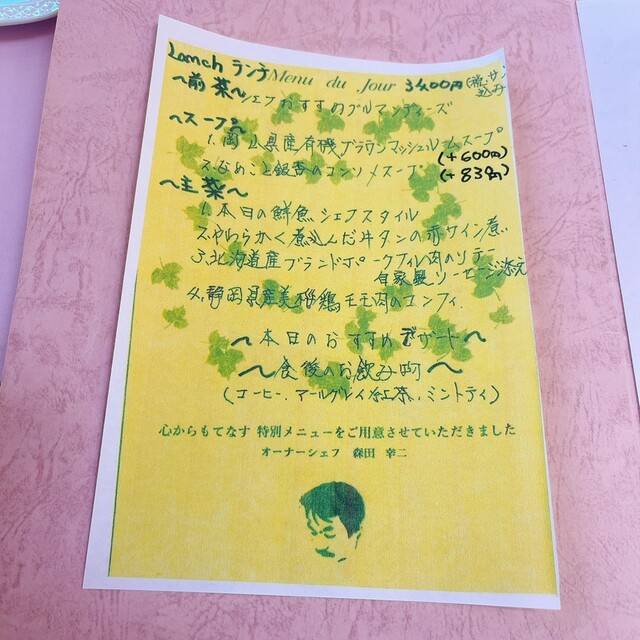 Lanch ランチ Menu du Jour 3400円(税・サ込み)
～前菜～
シェフおすすめのグルマンディーズ
～スープ～
1.岡山県産有機ブラウンマッシュルームスープ(+600円)
2.なめこと銀杏のコンソメスープ(+830円)
～主菜～
1.本日の鮮魚シェフスタイル
2.やわらかく煮込んだ牛タンの赤ワイン煮
3.北海道産ブランドポークフィレ肉のソテー
自家製ソーセージ添え
4.静岡県産美桜鶏モモ肉のコンフィ
～本日のおすすめデザート～
～食後のお飲み物～
(コーヒー.アールグレイ紅茶.ミントティ)
心からもてなす 特別メニューをご用意させていただきました
オーナーシェフ 森田 幸二